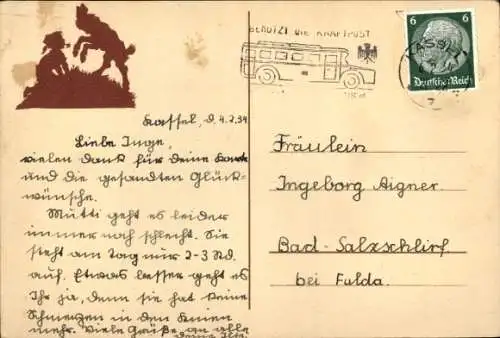 Kassel, d. 4.2.34
Liebe Inge,
vielen Dank für deine Karte
und die gesandten Glück-
wünsche.
Mutti geht es leider
immer noch schlecht. Sie
steht am Tag nur 2-3 Std.
auf. Etwas besser geht es
Ihr ja, denn sie hat keine
Schmerzen in den Knien
mehr. Viele Grüße an alle
deine Ilse.
BENUTZT DIE KRAFTPOST
KASSEL
7
6 6
Deutsches Reich
Fräulein
Ingeborg Aigner
Bad-Salzschlirf
bei Fulda.